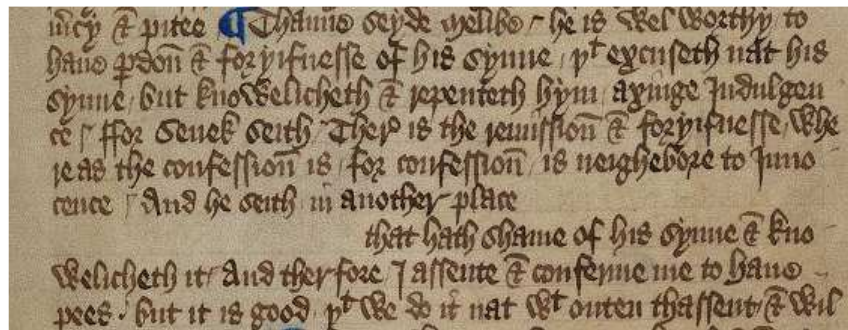 mcy & pitee ¶ Thanne seyde Melibe / he is wel worthy to
haue pdon̄ & foryifnesse of his synne / þt excuseth nat his
synne / but knowelicheth & repenteth hym / axinge Indulgen
ce / ffor Senek seith / Ther is the remission̄ & foryifnesse / whe
re as the confession̄ is / for confession̄ / is neighebore to Inno
cence / And he seith in another place
that hath shame of his synne & kno
welicheth it / And therfore I assente & conferme me to haue
pees / but it is good þt we do it nat wt outen thassent / & wil